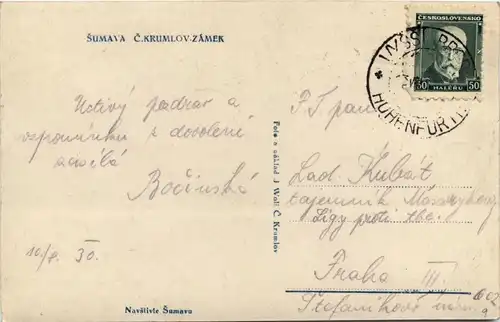 ŠUMAVA Č.KRUMLOV-ZÁMEK
ČESKOSLOVENSKO
50 HALÉŘŮ 50
VYŠŠÍ BRO
HOHENFURTH
Uctivý pozdrav a
vzpomínku z dovolené
zasílá
Bočínský
10/8. 30.
P.T. pan
Lad. Kubát
tajemník Masarykovy
Ligy proti tbc.
Praha III
Štefanikovo
Foto a náklad J. Wolf, Č. Krumlov
Navštivte Šumavu